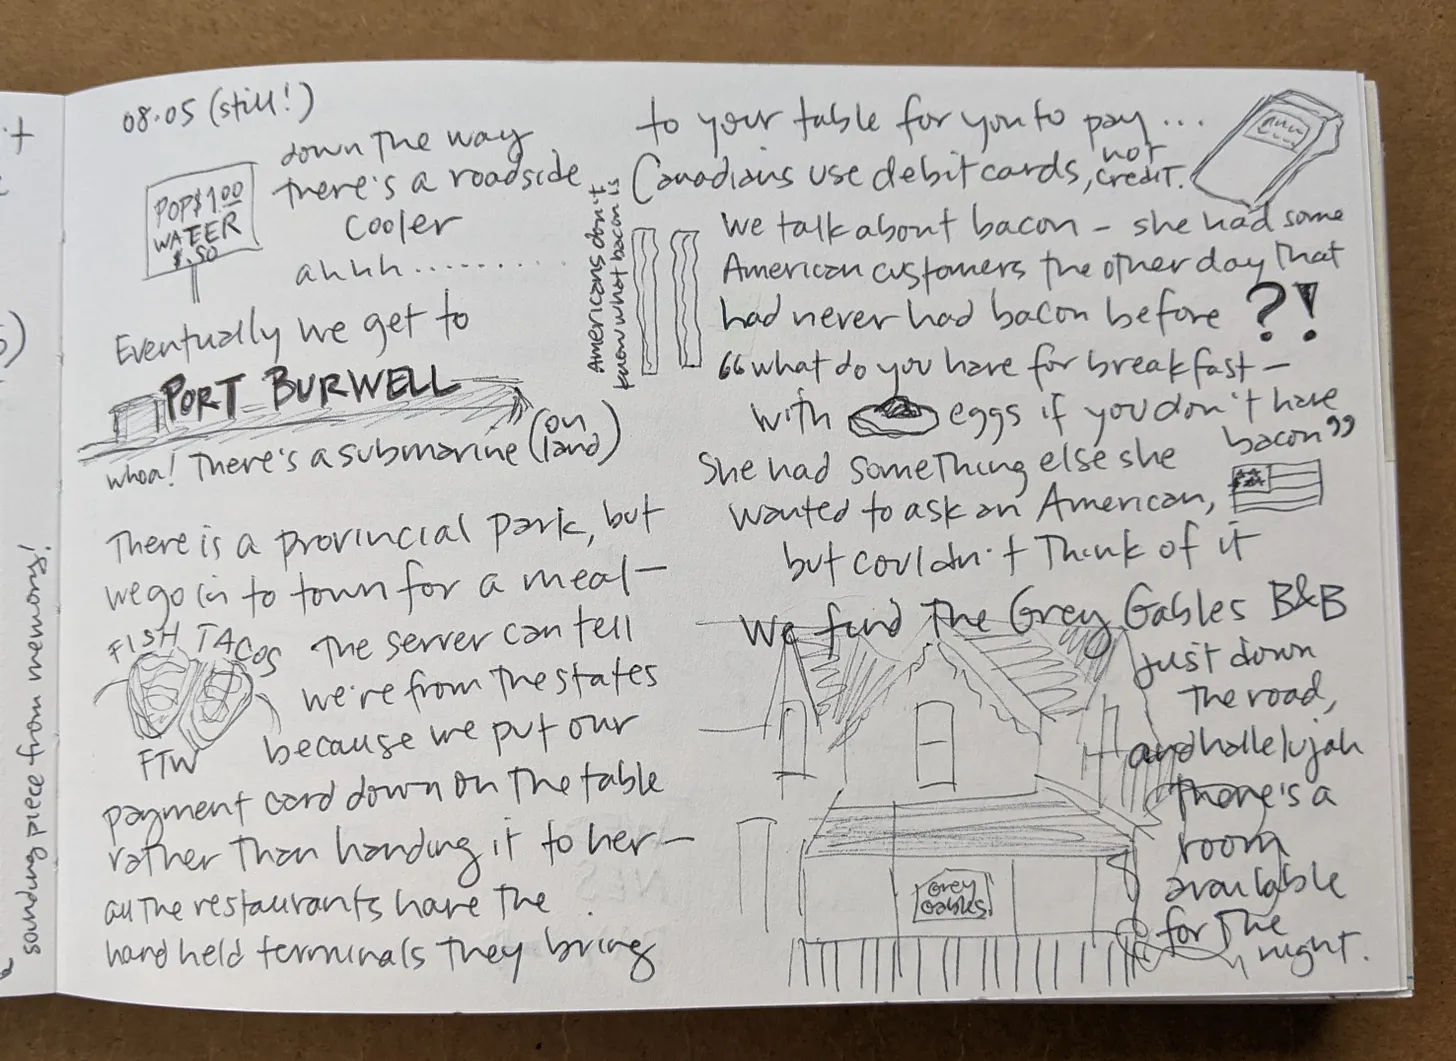 08.05 (still!)
down the way
there's a roadside
cooler
ahhh..........
POP $1.00
WATER
$.50
Eventually we get to
PORT BURWELL
whoa! There's a submarine (on land)
There is a provincial park, but
we go in to town for a meal—
FISH TACOS
FTW
The server can tell
we're from the states
because we put our
payment card down on the table
rather than handing it to her—
all the restaurants have the
hand held terminals they bring
to your table for you to pay...
Canadians use debit cards, not credit.
Americans don't
know what bacon is
We talk about bacon – she had some
American customers the other day that
had never had bacon before ?!
“what do you have for breakfast –
with eggs if you don't have
bacon”
She had something else she
wanted to ask an American,
but couldn't think of it
We find the Grey Gables B&B
just down
the road,
and hallelujah
there's a
room
available
for the
night.
Grey
Gables
sounding piece from memory!